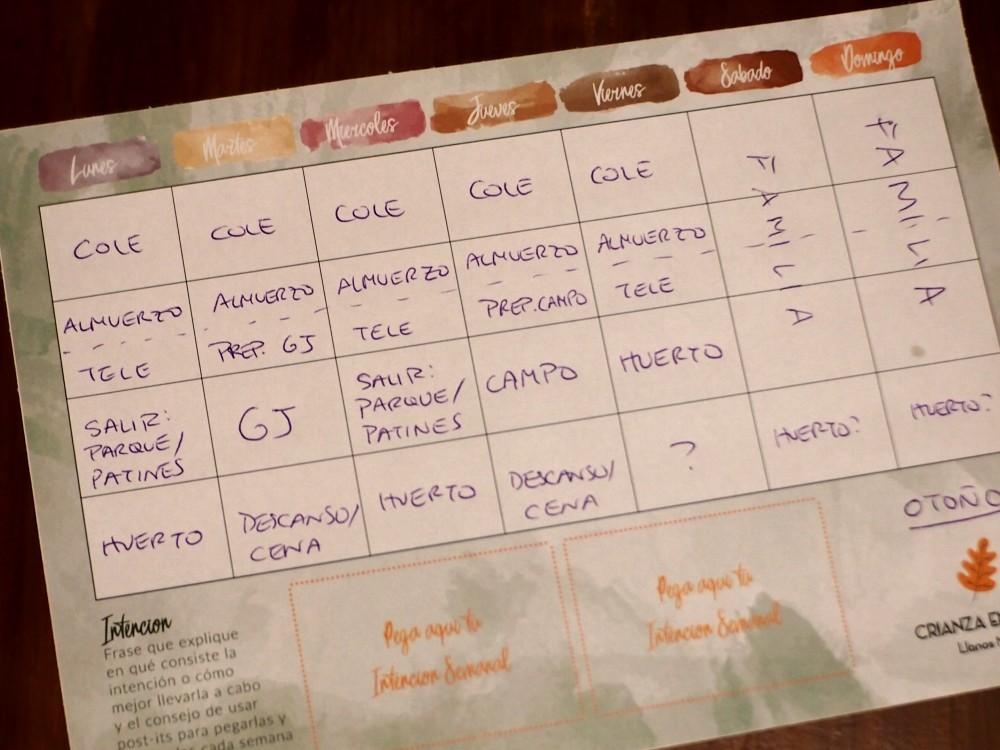 Lunes Martes Miercoles Jueves Viernes Sabado Domingo
COLE COLE COLE COLE COLE FAMILIA FAMILIA
ALMUERZO ALMUERZO ALMUERZO ALMUERZO ALMUERZO
TELE PREP. GJ TELE PREP. CAMPO TELE
SALIR: GJ SALIR: CAMPO HUERTO
PARQUE/ PARQUE/
PATINES PATINES
HUERTO DESCANSO/ HUERTO DESCANSO/ ? HUERTO? HUERTO?
CENA CENA
OTOÑO
Intencion
Frase que explique
en qué consiste la
intención o cómo
mejor llevarla a cabo
y el consejo de usar
post-its para pegarlas y
cada semana
Pega aqui tu
Intencion Semanal
Pega aqui tu
Intencion Semanal
CRIANZA